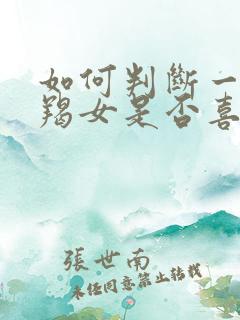 如何判斷一
羯女是否喜
張世南
未任同意禁止轉載